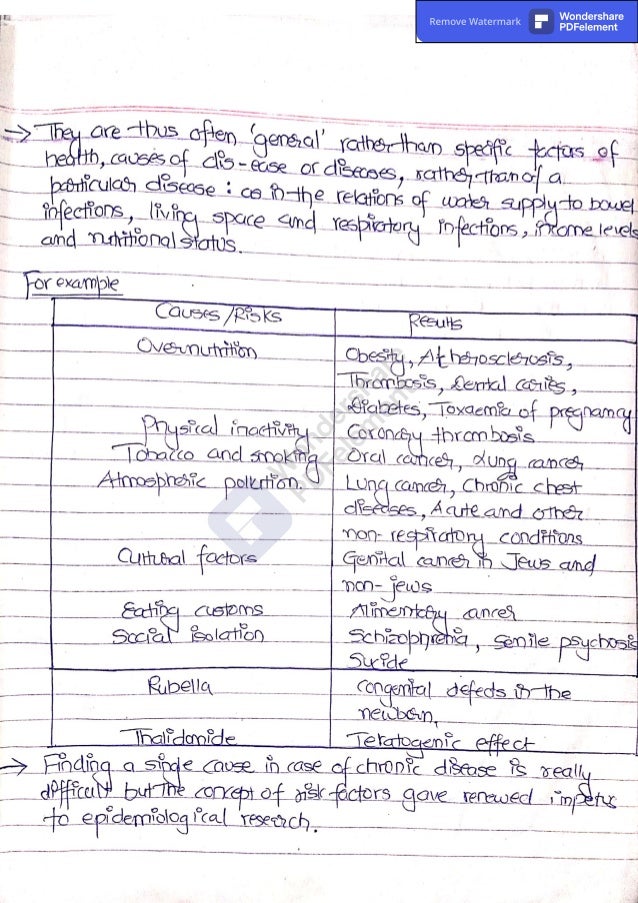 Remove Watermark
Wondershare
PDFelement
→ They are thus often 'general' rather than specific factors of
health, causes of dis-ease or diseases, rather than of a
particular disease : as in the relations of water supply to bowel
infections, living space and respiratory infections, income levels
and nutritional status.
For example
Causes/Risks Results
Overnutrition Obesity, Atherosclerosis,
Thrombosis, Dental caries,
Diabetes, Toxaemia of pregnancy
Physical inactivity Coronary thrombosis
Tobacco and smoking Oral cancer, Lung cancer
Atmospheric pollution. Lung cancer, Chronic chest
diseases, Acute and other
non-respiratory conditions
Cultural factors Genital cancer in Jews and
non-jews
Eating customs Alimentary cancer
Social isolation Schizophrenia, senile psychosis
Suicide
Rubella congenital defects in the
newborn,
Thalidomide Teratogenic effect
→ Finding a single cause in case of chronic disease is really
difficult but the concept of risk factors gave renewed impetus
to epidemiological research.
Wondershare
PDFelement